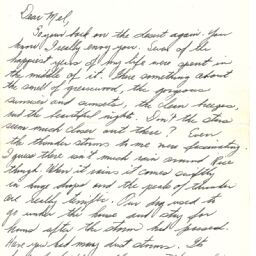 Dear Mel,
So your back on the desert again. You
know I really envy you. Seven of the
happiest years of my life were spent in
the middle of it. There something about
the smell of greasewood, the gorgeous
sunrises and sunsets, the clean breezes,
and the beautiful nights. Don't the stars
seem much closer out there? Even
the thunder storms to me were fascinating.
I guess there isn't much rain around
though. When it rains it comes swiftly
in huge drops and the peals of thunder
are really terrific. Our dog used to
go under the house and stay for
hours after the storm had passed.
Have you had many dust storms. Its